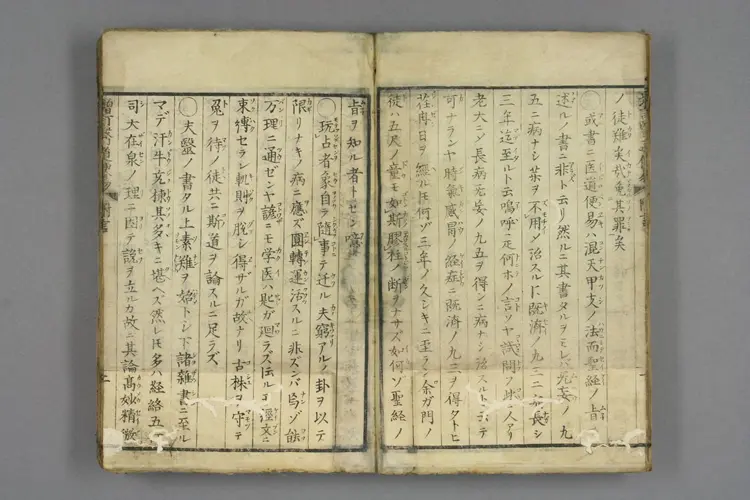 ノ徒難矣哉免其罪矣
〇或書ニ医道便易ハ混天甲支ノ法而聖経ノ旨
述ルノ書ニ非ト云リ然ルニ其書タルヲミレバ无妄ノ九
五ニ病ナシ薬ヲ不用ノ治スルト既済ノ九三ニ病長シ
三年迄至ルト云嗚呼是何ホノ言ソヤ試問フ此ニ人アリ
老大ニシ長病无妄ノ九五ヲ得ンニ病ナシ治スルト云テ
可ナランヤ時氣感冒ノ経症ニ既済ノ九三ヲ得タトヒ
荏苒日ヲ
ルモ何ゾ三年ノ久シキニ至ラン余ガ門ノ
徒ハ五尺ノ童モ如斯膠柱ノ断ヲナサズ如何ソ聖経ノ
旨ヲ知ル者トセン
〇玩占者象自ラ随事テ迁ル夫窮アルノ卦ヲ以テ
限リナキノ病ニ應ズ圓轉運活スルニ非ズンバ烏ゾ能
万理ニ通ゼンヤ諺ニモ学医ハ匙ガ廻ラズ
経文ニ
束縛セラレ軌則ヲ脱シ得ザルガ故ナリ古株ヲ守テ
兎ヲ待ノ徒共ニ斯道ヲ論スルニ足ラズ
〇夫醫ノ書タル上素難ヲ始トシ下諸雑書ニ至ル
マデ汗牛充棟其多キニ堪ヘズ然レモ多ハ経絡五
司天在泉ノ理ニ因テ説ヲ立ルカ故ニ其論髙妙精微